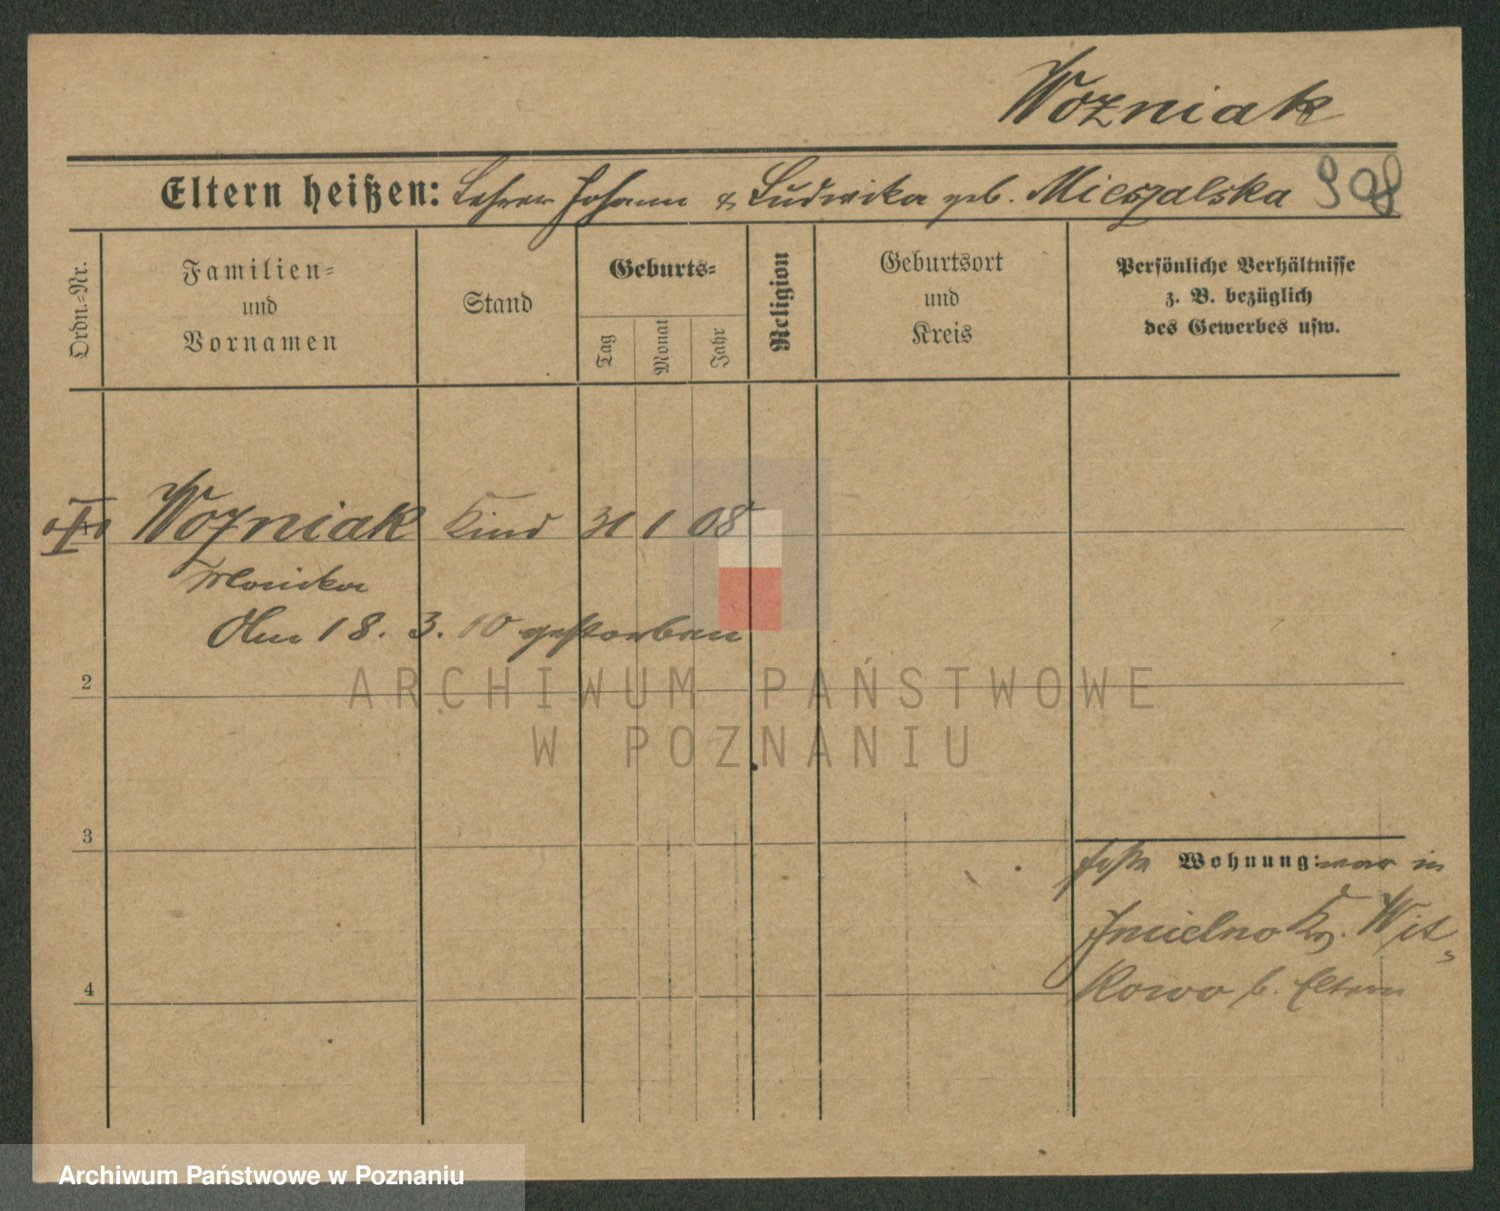 Wozniak
Eltern heißen: Lehrer Johann & Ludwika geb. Mieszalska 908
Ordn.-Nr.
Familien- und Vornamen
Stand
Geburts-
Tag
Monat
Jahr
Religion
Geburtsort und Kreis
Persönliche Verhältnisse
z. B. bezüglich
des Gewerbes usw.
Wozniak Kind 31 1 08
Monika
Am 18. 3. 10 gestorben
2
ARCHIWUM PAŃSTWOWE
W POZNANIU
3
feste Wohnung: war in
Imielno Kr. Wit-
kowo b. Eltern
4
Archiwum Państwowe w Poznaniu